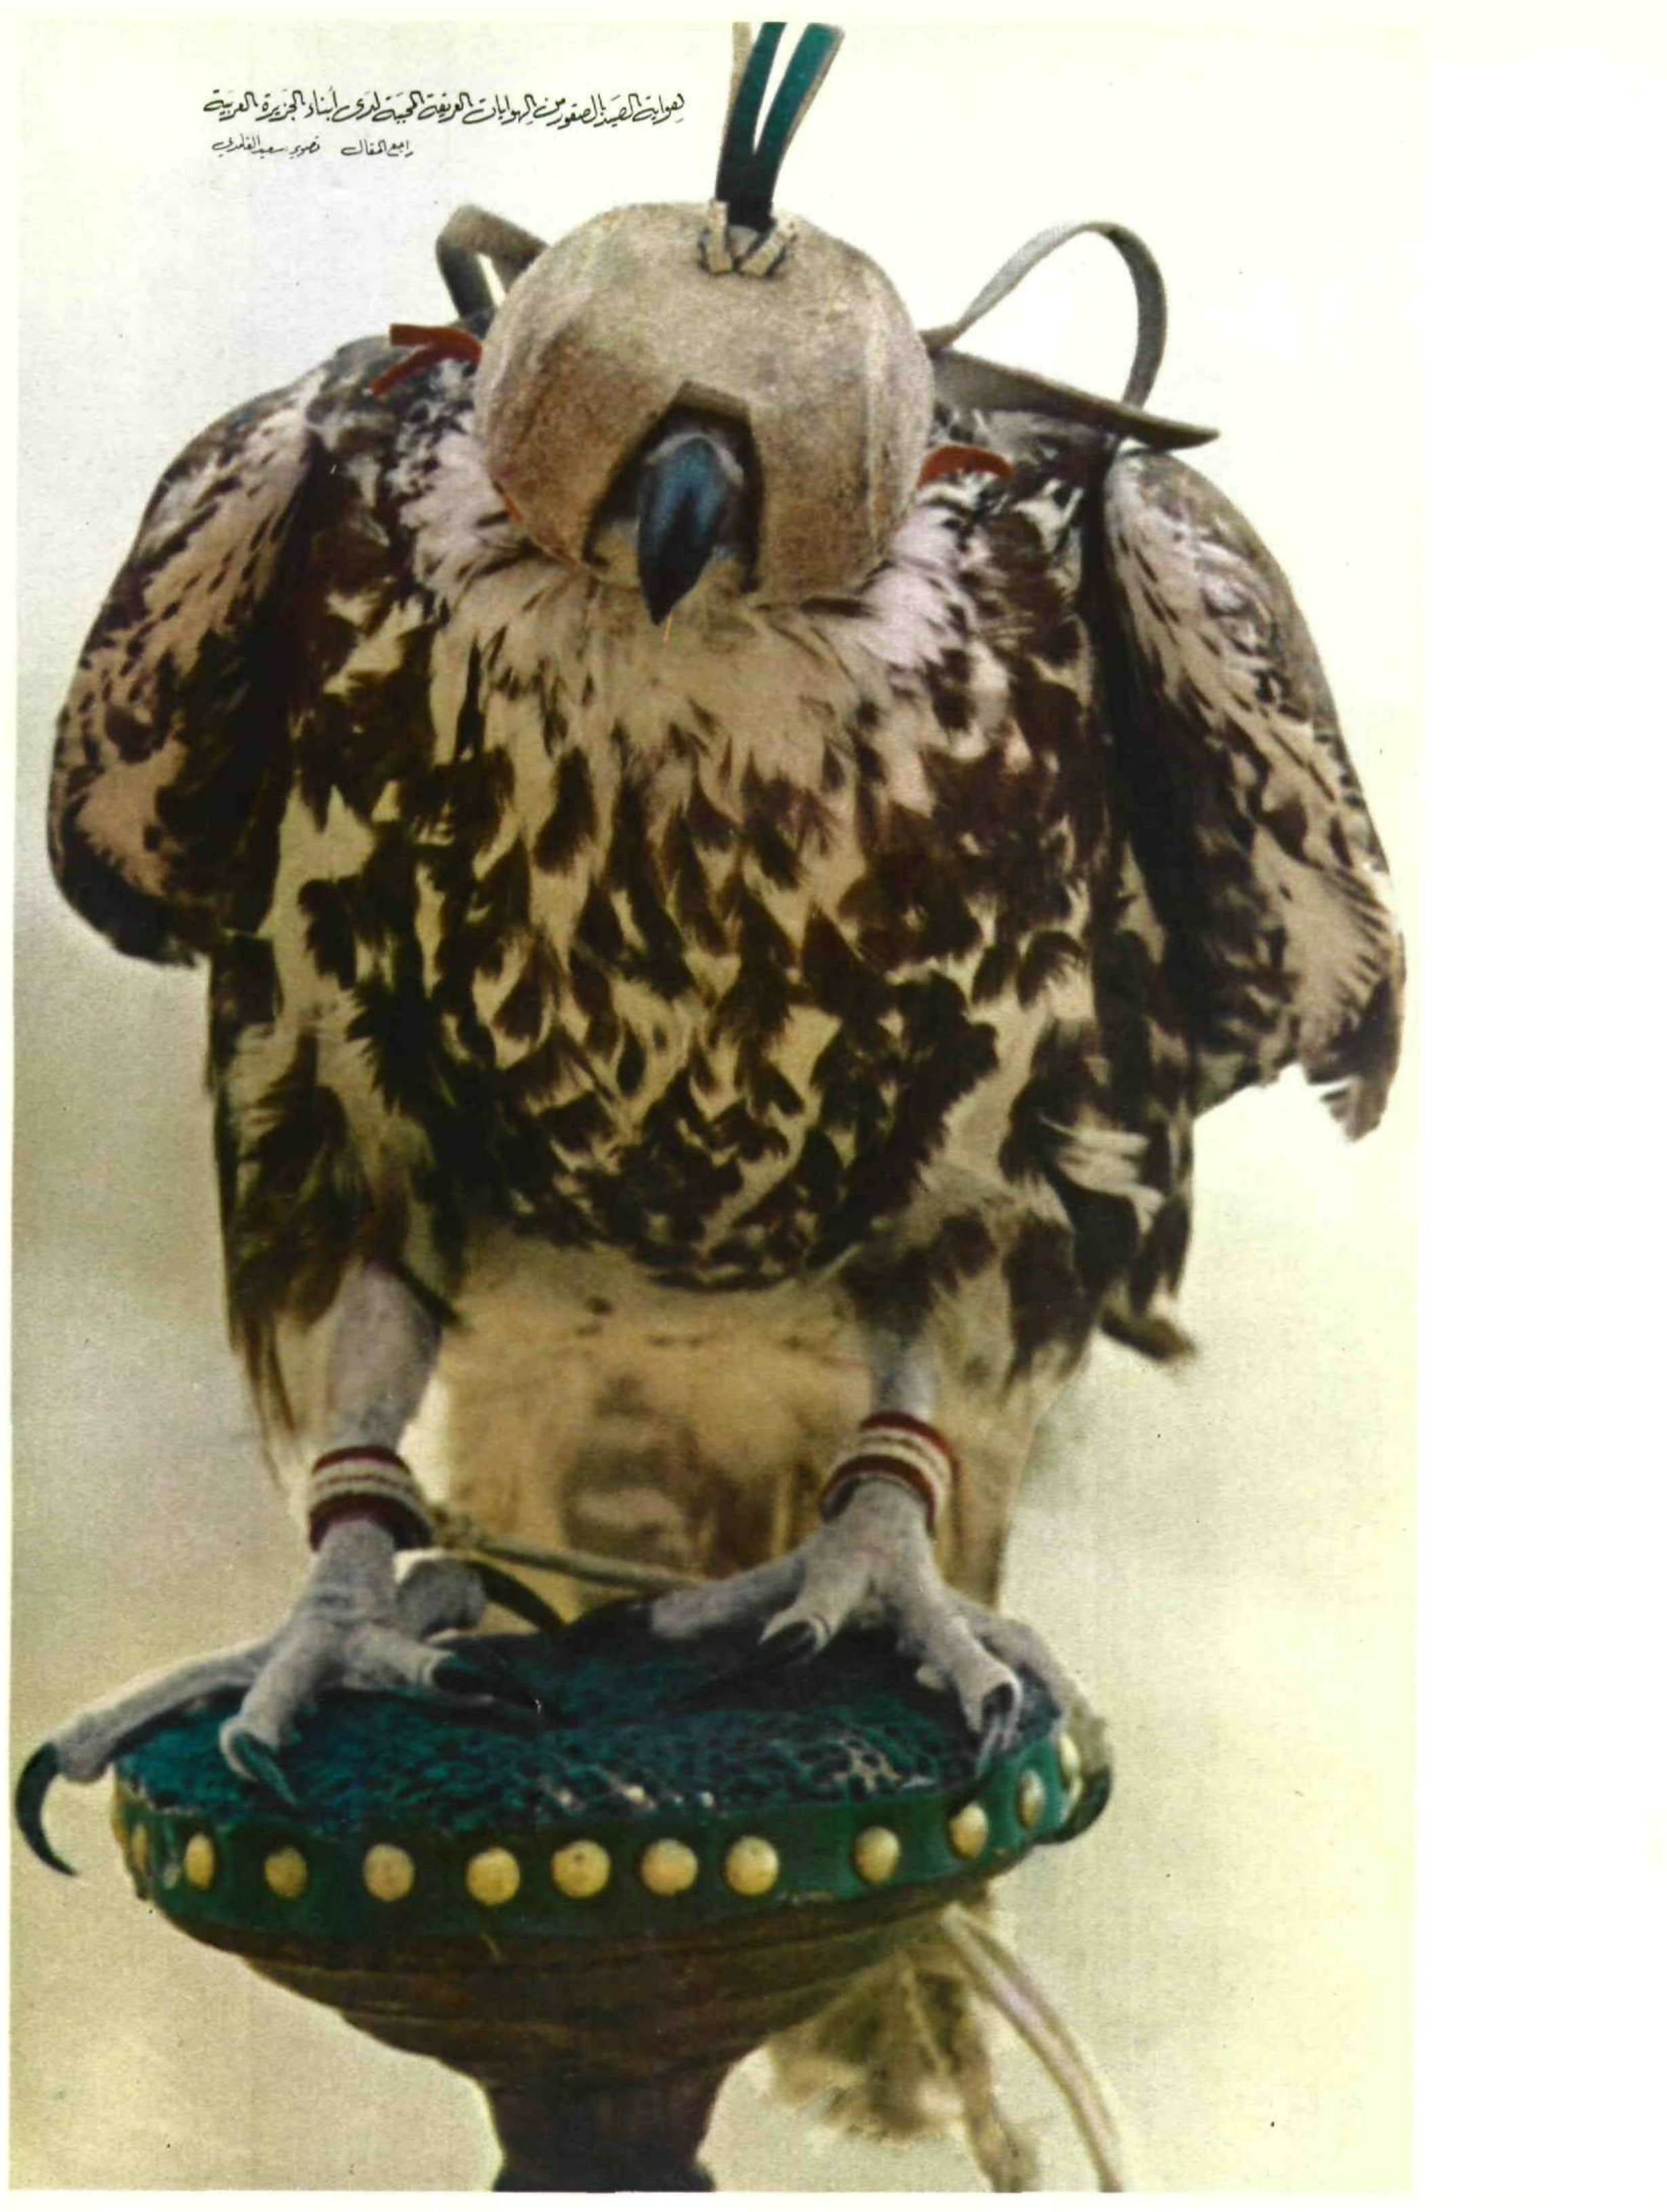 هواية الصيد بالصقور من الهوايات العريقة المحببة لدى أبناء الجزيرة العربية
راجع المقال تصوير سعيد الغامدي